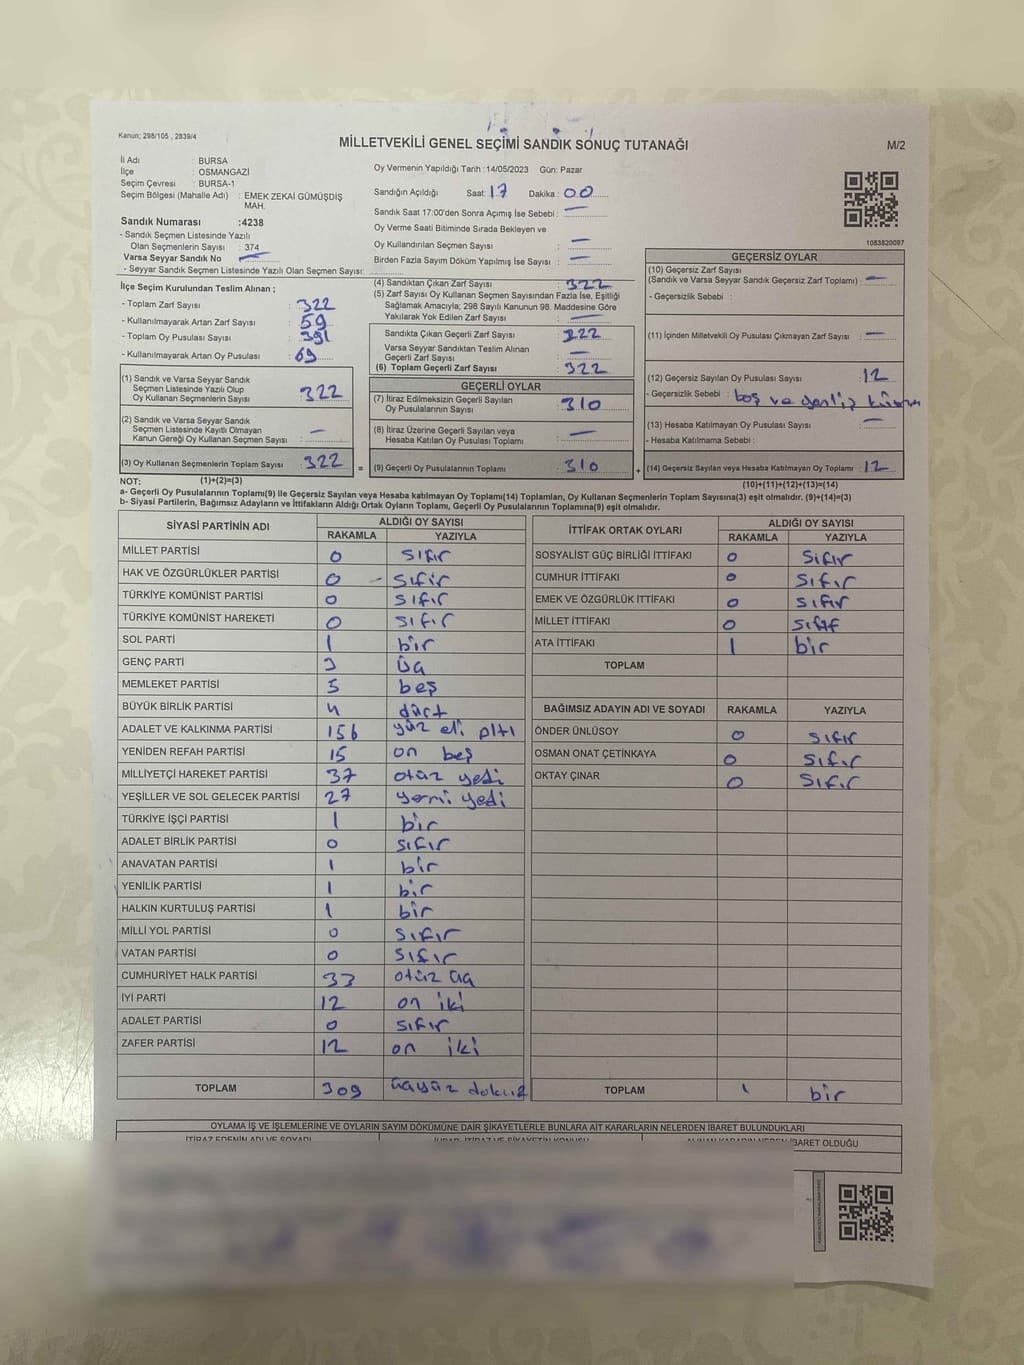 Kanun; 298/105 , 2839/4
MİLLETVEKİLİ GENEL SEÇİMİ SANDIK SONUÇ TUTANAĞI
M/2
İl Adı : BURSA
İlçe : OSMANGAZİ
Seçim Çevresi : BURSA-1
Seçim Bölgesi (Mahalle Adı) : EMEK ZEKAİ GÜMÜŞDİŞ MAH.
Sandık Numarası :4238
- Sandık Seçmen Listesinde Yazılı
Olan Seçmenlerin Sayısı : 374
Varsa Seyyar Sandık No —
- Seyyar Sandık Seçmen Listesinde Yazılı Olan Seçmen Sayısı:
Oy Vermenin Yapıldığı Tarih :14/05/2023 Gün: Pazar
Sandığın Açıldığı Saat: 17 Dakika : 00
Sandık Saat 17:00'den Sonra Açımış İse Sebebi : —
Oy Verme Saati Bitiminde Sırada Bekleyen ve
Oy Kullandırılan Seçmen Sayısı : —
Birden Fazla Sayım Döküm Yapılmış İse Sayısı : —
1083820097
İlçe Seçim Kurulundan Teslim Alınan ;
- Toplam Zarf Sayısı : 322
- Kullanılmayarak Artan Zarf Sayısı : 59
- Toplam Oy Pusulası Sayısı : 391
- Kullanılmayarak Artan Oy Pusulası : 69
(1) Sandık ve Varsa Seyyar Sandık
Seçmen Listesinde Yazılı Olup
Oy Kullanan Seçmenlerin Sayısı : 322
(2) Sandık ve Varsa Seyyar Sandık
Seçmen Listesinde Kayıtlı Olmayan
Kanun Gereği Oy Kullanan Seçmen Sayısı : —
(3) Oy Kullanan Seçmenlerin Toplam Sayısı : 322
(4) Sandıktan Çıkan Zarf Sayısı : 322
(5) Zarf Sayısı Oy Kullanan Seçmen Sayısından Fazla İse, Eşitliği
Sağlamak Amacıyla; 298 Sayılı Kanunun 98. Maddesine Göre
Yakılarak Yok Edilen Zarf Sayısı : —
Sandıkta Çıkan Geçerli Zarf Sayısı : 322
Varsa Seyyar Sandıktan Teslim Alınan
Geçerli Zarf Sayısı : —
(6) Toplam Geçerli Zarf Sayısı : 322
GEÇERLİ OYLAR
(7) İtiraz Edilmeksizin Geçerli Sayılan
Oy Pusulalarının Sayısı : 310
(8) İtiraz Üzerine Geçerli Sayılan veya
Hesaba Katılan Oy Pusulası Toplamı : —
= (9) Geçerli Oy Pusulalarının Toplamı : 310 +
GEÇERSİZ OYLAR
(10) Geçersiz Zarf Sayısı
(Sandık ve Varsa Seyyar Sandık Geçersiz Zarf Toplamı) : —
- Geçersizlik Sebebi :
(11) İçinden Milletvekili Oy Pusulası Çıkmayan Zarf Sayısı : —
(12) Geçersiz Sayılan Oy Pusulası Sayısı : 12
- Geçersizlik Sebebi : boş ve
(13) Hesaba Katılmayan Oy Pusulası Sayısı : —
- Hesaba Katılmama Sebebi :
(14) Geçersiz Sayılan veya Hesaba Katılmayan Oy Toplamı : 12
NOT: (1)+(2)=(3) (10)+(11)+(12)+(13)=(14)
a- Geçerli Oy Pusulalarının Toplamı(9) ile Geçersiz Sayılan veya Hesaba katılmayan Oy Toplamı(14) Toplamları, Oy Kullanan Seçmenlerin Toplam Sayısına(3) eşit olmalıdır. (9)+(14)=(3)
b- Siyasi Partilerin, Bağımsız Adayların ve İttifakların Aldığı Ortak Oyların Toplamı, Geçerli Oy Pusulalarının Toplamına(9) eşit olmalıdır.
SİYASİ PARTİNİN ADI ALDIĞI OY SAYISI
RAKAMLA YAZIYLA
MİLLET PARTİSİ 0 sıfır
HAK VE ÖZGÜRLÜKLER PARTİSİ 0 - sıfır
TÜRKİYE KOMÜNİST PARTİSİ 0 sıfır
TÜRKİYE KOMÜNİST HAREKETİ 0 sıfır
SOL PARTİ 1 bir
GENÇ PARTİ 3 üç
MEMLEKET PARTİSİ 5 beş
BÜYÜK BİRLİK PARTİSİ 4 dört
ADALET VE KALKINMA PARTİSİ 156 yüz eli altı
YENİDEN REFAH PARTİSİ 15 on beş
MİLLİYETÇİ HAREKET PARTİSİ 37 otuz yedi
YEŞİLLER VE SOL GELECEK PARTİSİ 27 yermi yedi
TÜRKİYE İŞÇİ PARTİSİ 1 bir
ADALET BİRLİK PARTİSİ 0 sıfır
ANAVATAN PARTİSİ 1 bir
YENİLİK PARTİSİ 1 bir
HALKIN KURTULUŞ PARTİSİ 1 bir
MİLLİ YOL PARTİSİ 0 sıfır
VATAN PARTİSİ 0 sıfır
CUMHURİYET HALK PARTİSİ 33 otuz üç
İYİ PARTİ 12 on iki
ADALET PARTİSİ 0 sıfır
ZAFER PARTİSİ 12 on iki
TOPLAM 309 üçyüz dokuz
İTTİFAK ORTAK OYLARI ALDIĞI OY SAYISI
RAKAMLA YAZIYLA
SOSYALİST GÜÇ BİRLİĞİ İTTİFAKI 0 sıfır
CUMHUR İTTİFAKI 0 sıfır
EMEK VE ÖZGÜRLÜK İTTİFAKI 0 sıfır
MİLLET İTTİFAKI 0 sıfır
ATA İTTİFAKI 1 bir
TOPLAM
BAĞIMSIZ ADAYIN ADI VE SOYADI RAKAMLA YAZIYLA
ÖNDER ÜNLÜSOY 0 sıfır
OSMAN ONAT ÇETİNKAYA 0 sıfır
OKTAY ÇINAR 0 sıfır
TOPLAM 1 bir
OYLAMA İŞ VE İŞLEMLERİNE VE OYLARIN SAYIM DÖKÜMÜNE DAİR ŞİKAYETLERLE BUNLARA AİT KARARLARIN NELERDEN İBARET BULUNDUKLARI
İTİRAZ EDENİN ADI VE SOYADI
İBARET OLDUĞU